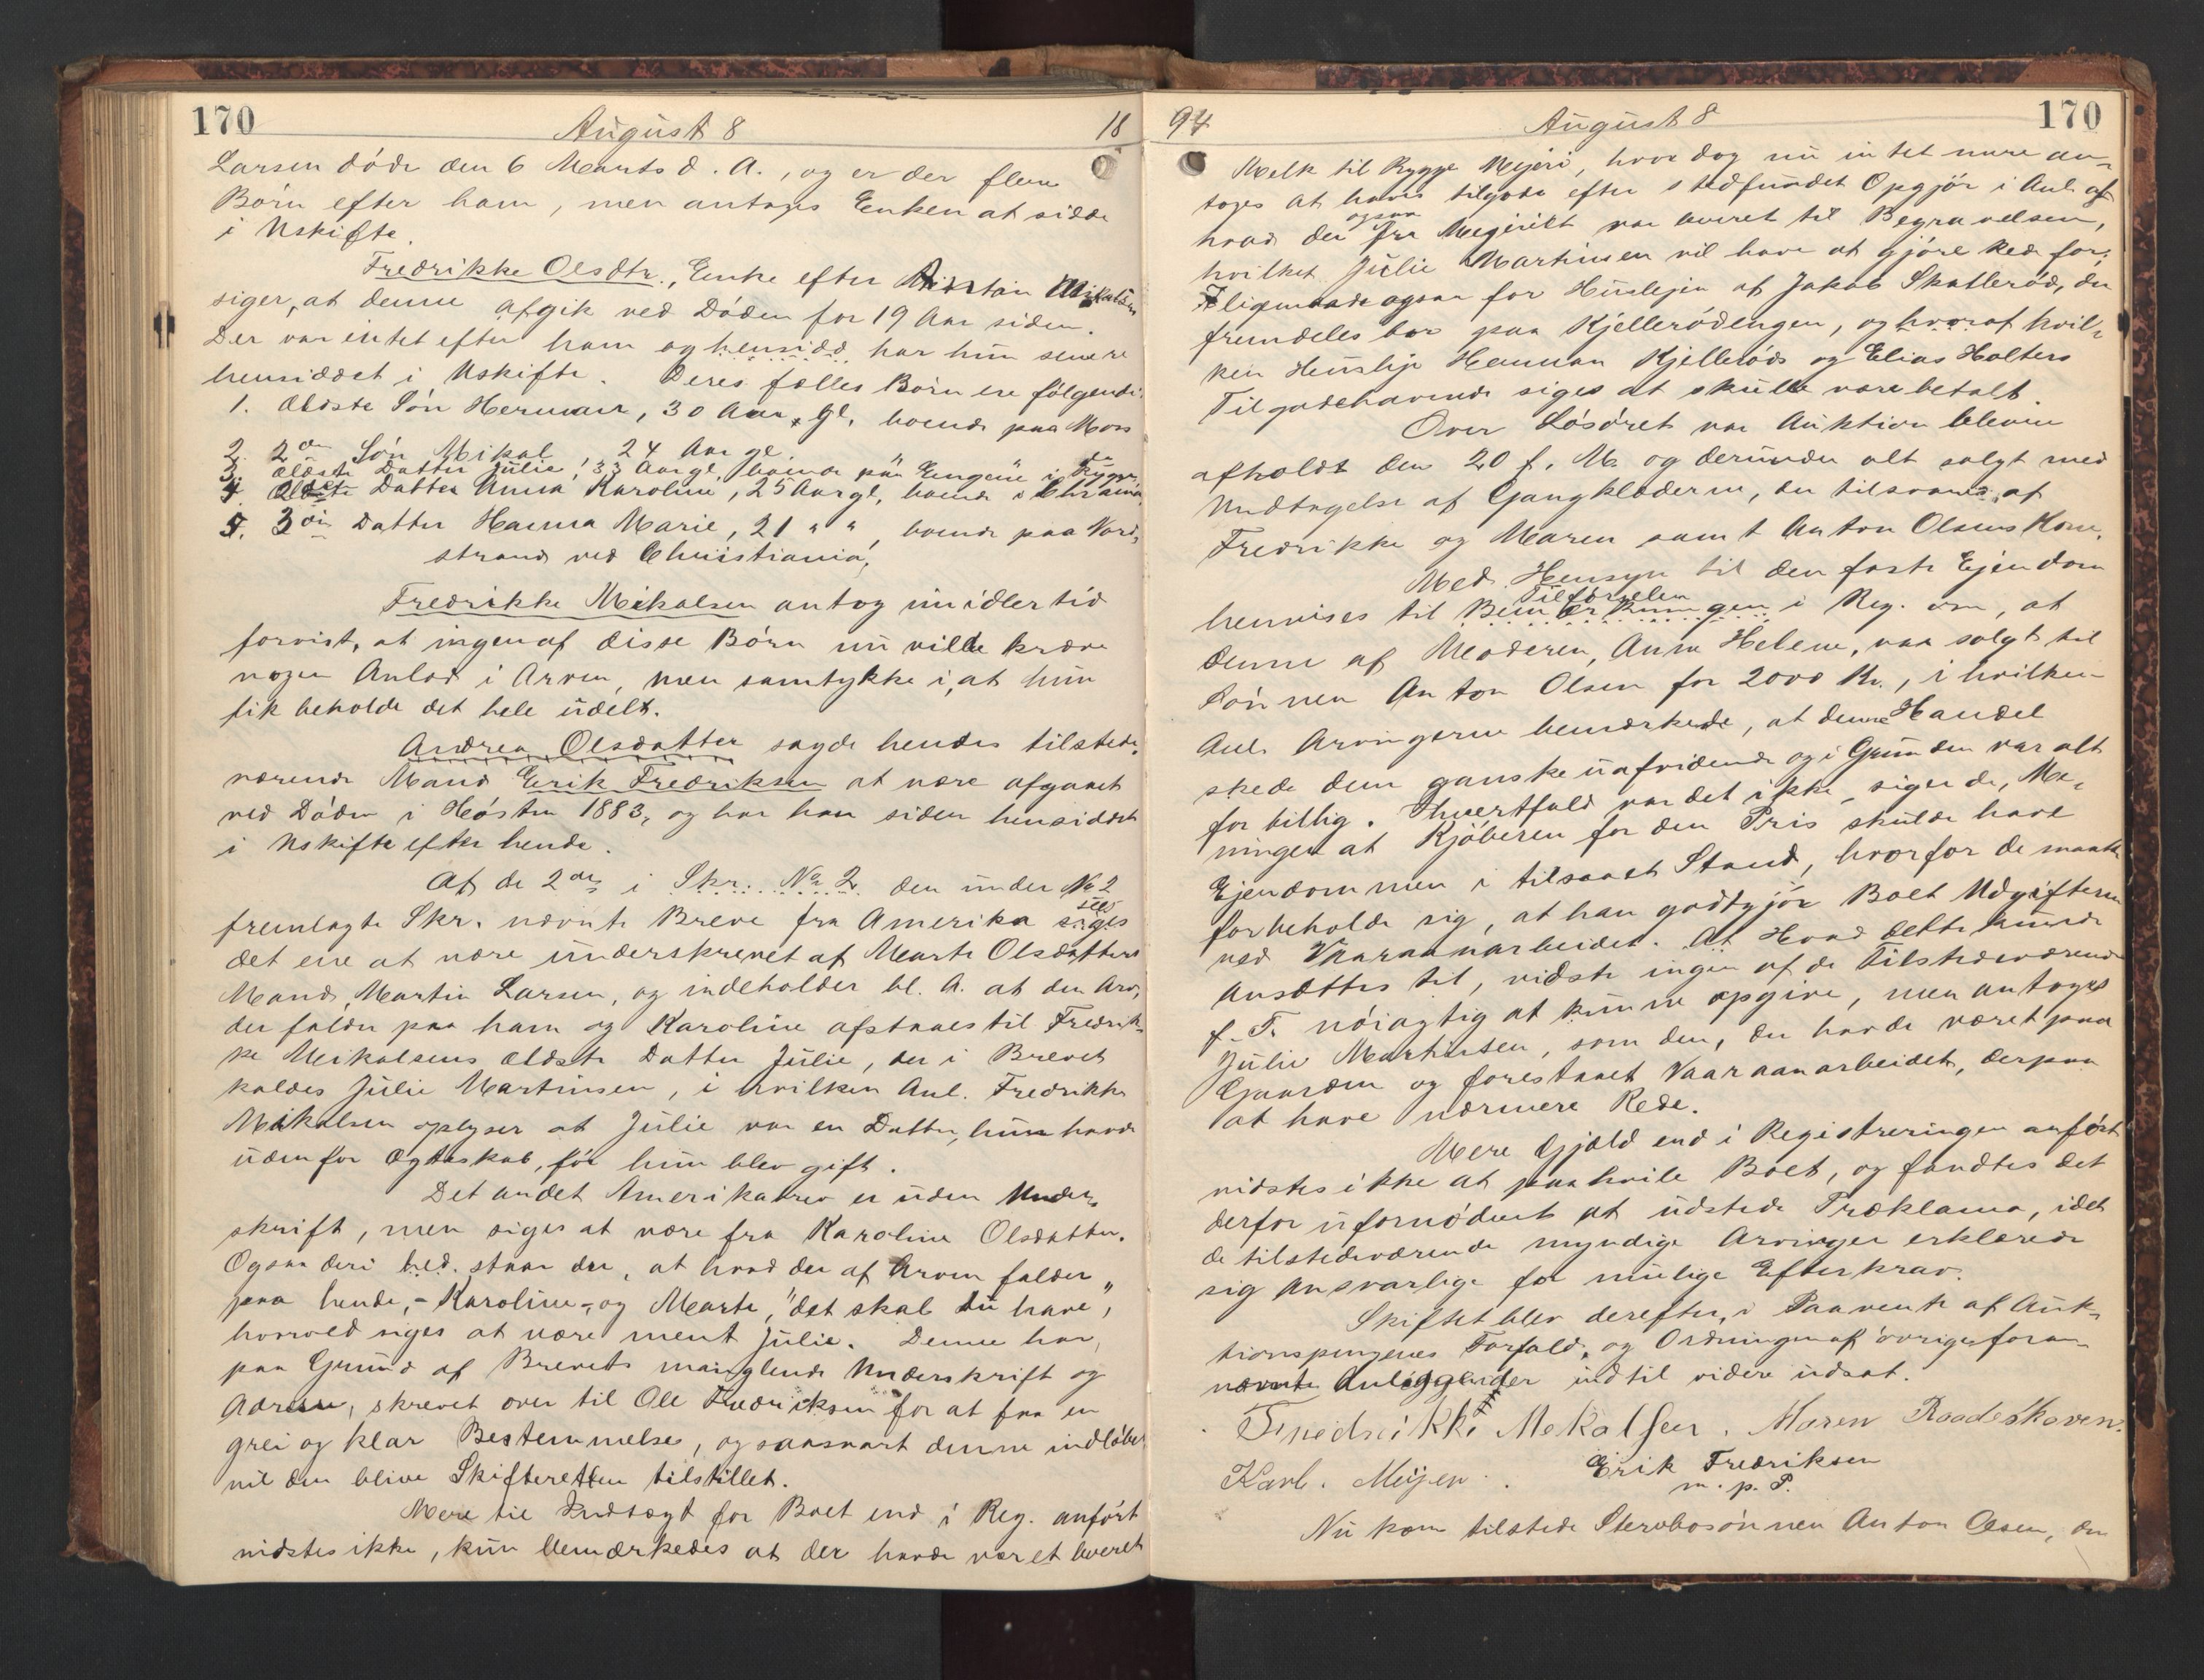 170 August 8 18
Larsen döde den 6 Marts d. A., og er der flere
Börn efter ham, men antages Enken at sidde
i Uskifte.
Fredrikke Olsdtr., Enke efter Mikalsen
siger, at denne afgik ved Döden for 19 Aar siden.
Der var intet efter ham og hensidd har hun senere
hensiddet i Uskifte. Deres fælles Börn ere fölgende:
1. Ældste Sön Herman, 30 Aar gl., boende paa Moss
2. 2den Sön Mikal, 24 Aar gl.
3. ældste Datter Julie, 33 Aar gl., boende på Engene i Rygge,
4. Datter Anna Karoline, 25 Aar gl., boende i Chrania,
5. 3die Datter Hanna Marie, 21 " ", boende paa Nord-
strand ved Christiania,
Fredrikke Mikalsen antog imidlertid
forvist, at ingen af disse Börn nu vilde kræve
nogen Anlod i Arven, men samtykke i, at hun
fik beholde det hele udelt.
Andrea Olsdatter sagde hendes tilstede-
værende Mand Erik Fredriksen at være afgaaet
ved Döden i Hösten 1883, og har han siden hensiddet
i Uskifte efter hende.
Af de 2de i Skr. No 2 den under No 2
fremlagte Skr. nævnte Breve fra Amerika siges
det ene at være underskrevet af Marte Olsdatters
Mand, Martin Larsen, og indeholder bl. A. at den Arv,
der falder paa ham og Karoline afstaaes til Fredrik-
ke Mikalsens ældste Datter Julie, der i Brevet
kaldes Julie Martinsen, i hvilken Anl. Fredrikke
Mikalsen oplyser at Julie var en Datter, hun havde
udenfor Ægteskab, för hun blev gift.
Det andet Amerikabrev er uden Under-
skrift, men siges at være fra Karoline Olsdatter.
Ogsaa deri hed. staar der, at hvad der af Arven falder
paa hende, - Karoline, - og Marte, "det skal du have",
hvorved siges at være ment Julie. Denne har,
paa Grund af Brevets manglende Underskrift og
Adresse, skrevet over til Ole Fredriksen for at faa en
grei og klar Bestemmelse, og saasnart denne indlöber
vil den blive Skifteretten tilstillet.
Mere til Indtægt for Boet end i Reg. anfört
vidstes ikke, kun bemærkedes at der havde været leveret
94 August 8 170
Melk til Rygge Mejeri, hvor dog nu intet mere an-
tages at haves tilgode efter stedfundet Opgjör i Anl. af
hvad der ogsaa fra Mejeriet var leveret til Begravelsen,
hvilket Julie Martinsen vil have at gjöre Rede for;
ligemaade ogsaa for Huslejen af Jakob Skallerød, der
fremdeles bor paa Kjellerödengen, og hvoraf hvil-
ken Husleje Herman Kjelleröds og Elias Holters
Tilgodehavende siges at skulle være betalt.
Over Lösöret var Auktion bleven
afholdt den 20 f. M. og derunder alt solgt med
Undtagelse af Gangklæderne, der tilsvares af
Fredrikke og Maren samt Anton Olsens Kone.
Med Hensyn til den faste Ejendom
henvises til Bemærkningen Tilförselen i Reg. om, at
denne af Moderen, Anne Helene, var solgt til
Sönnen Anton Olsen for 2000 Kr., i hvilken
Anl. Arvingerne bemærkede, at denne Handel
skede dem ganske uafvidende og i Grunden var alt
for billig. Ihvertfald var det ikke, siger de, Me-
ningen at Kjöberen for den Pris skulde have
Ejendommen i tilsaaet Stand, hvorfor de maatte
forbeholde sig, at han godtgjör Boet Udgifterne
ved Vaaraanarbeidet. At Hvad dette kunde
ansættes til, vidste ingen af de Tilstedeværende
f. T. nöiagtig at kunne opgive, men antoges
Julie Martinsen, som den, der havde været paa
Gaarden og forestaaet Vaaraanarbeidet, derpaa
at have nærmere Rede.
Mere Gjæld end i Registreringen anfört
vidstes ikke at paahvile Boet, og fandtes det
derfor ufornödent at udstede Præklama, idet
de tilstedeværende myndige Arvinger erklærede
sig ansvarlige for mulige Efterkrav.
Skiftet blev derefter, i Paavente af Auk-
tionspengenes Forfald, og Ordningen af övrige foran-
nævnte Anliggender indtil videre udsat.
Fredrikke Mekalsen. Maren Raadeskoven.
Karl. Meijer. Erik Fredriksen
m. p. P.
Nu kom tilstede Stervbosönnen Anton Olsen, den